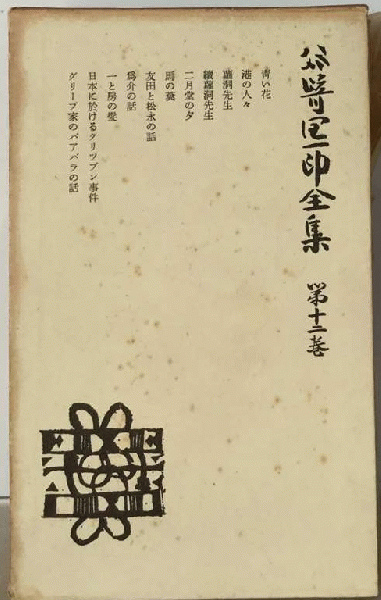 谷崎潤一郎全集 第十二巻
青い花
港の人々
蘿洞先生
續蘿洞先生
二月堂の夕
馬の糞
友田と松永の話
爲介の話
一と房の髮
日本に於けるクリツプン事件
グリーブ家のバアバラの話